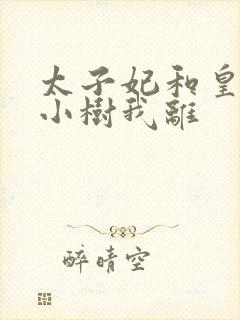 太子妃和皇
小樹我離
醉晴空